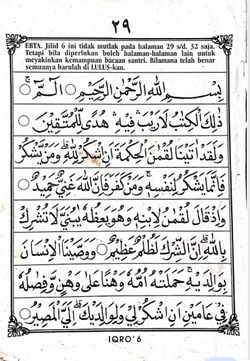 ٢٩
EBTA. Jilid 6 ini tidak mutlak pada halaman 29 s/d. 32 saja.
Tetapi bila diperlukan boleh halaman-halaman lain untuk
meyakinkan kemampuan bacaan santri. Bilamana telah benar
semuanya barulah di LULUS-kan.
بِسْمِ اللهِ الرَّحْمٰنِ الرَّحِيْمِ ○ الٓمّٓ ○
ذٰلِكَ الْكِتٰبُ لَارَيْبَ فِيْهِ هُدًى لِّلْمُتَّقِيْنَ ○
وَلَقَدْ اٰتَيْنَا لُقْمٰنَ الْحِكْمَةَ اَنِ اشْكُرْ لِلّٰهِ وَمَنْ يَّشْكُرْ
فَاِنَّمَا يَشْكُرُ لِنَفْسِهٖ وَمَنْ كَفَرَ فَاِنَّ اللهَ غَنِيٌّ حَمِيْدٌ ○
وَاِذْ قَالَ لُقْمٰنُ لِابْنِهٖ وَهُوَ يَعِظُهٗ يٰبُنَيَّ لَا تُشْرِكْ
بِاللهِ اِنَّ الشِّرْكَ لَظُلْمٌ عَظِيْمٌ ○ وَوَصَّيْنَا الْاِنْسَانَ
بِوَالِدَيْهِ حَمَلَتْهُ اُمُّهٗ وَهْنًا عَلٰى وَهْنٍ وَّفِصٰلُهٗ
فِيْ عَامَيْنِ اَنِ اشْكُرْ لِيْ وَلِوَالِدَيْكَ اِلَيَّ الْمَصِيْرُ ○
IQRO' 6